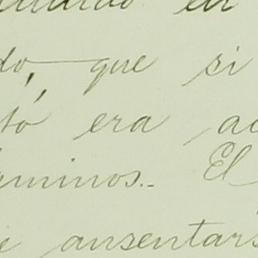 en
do, que si
tó era
minos.. El
ausentar